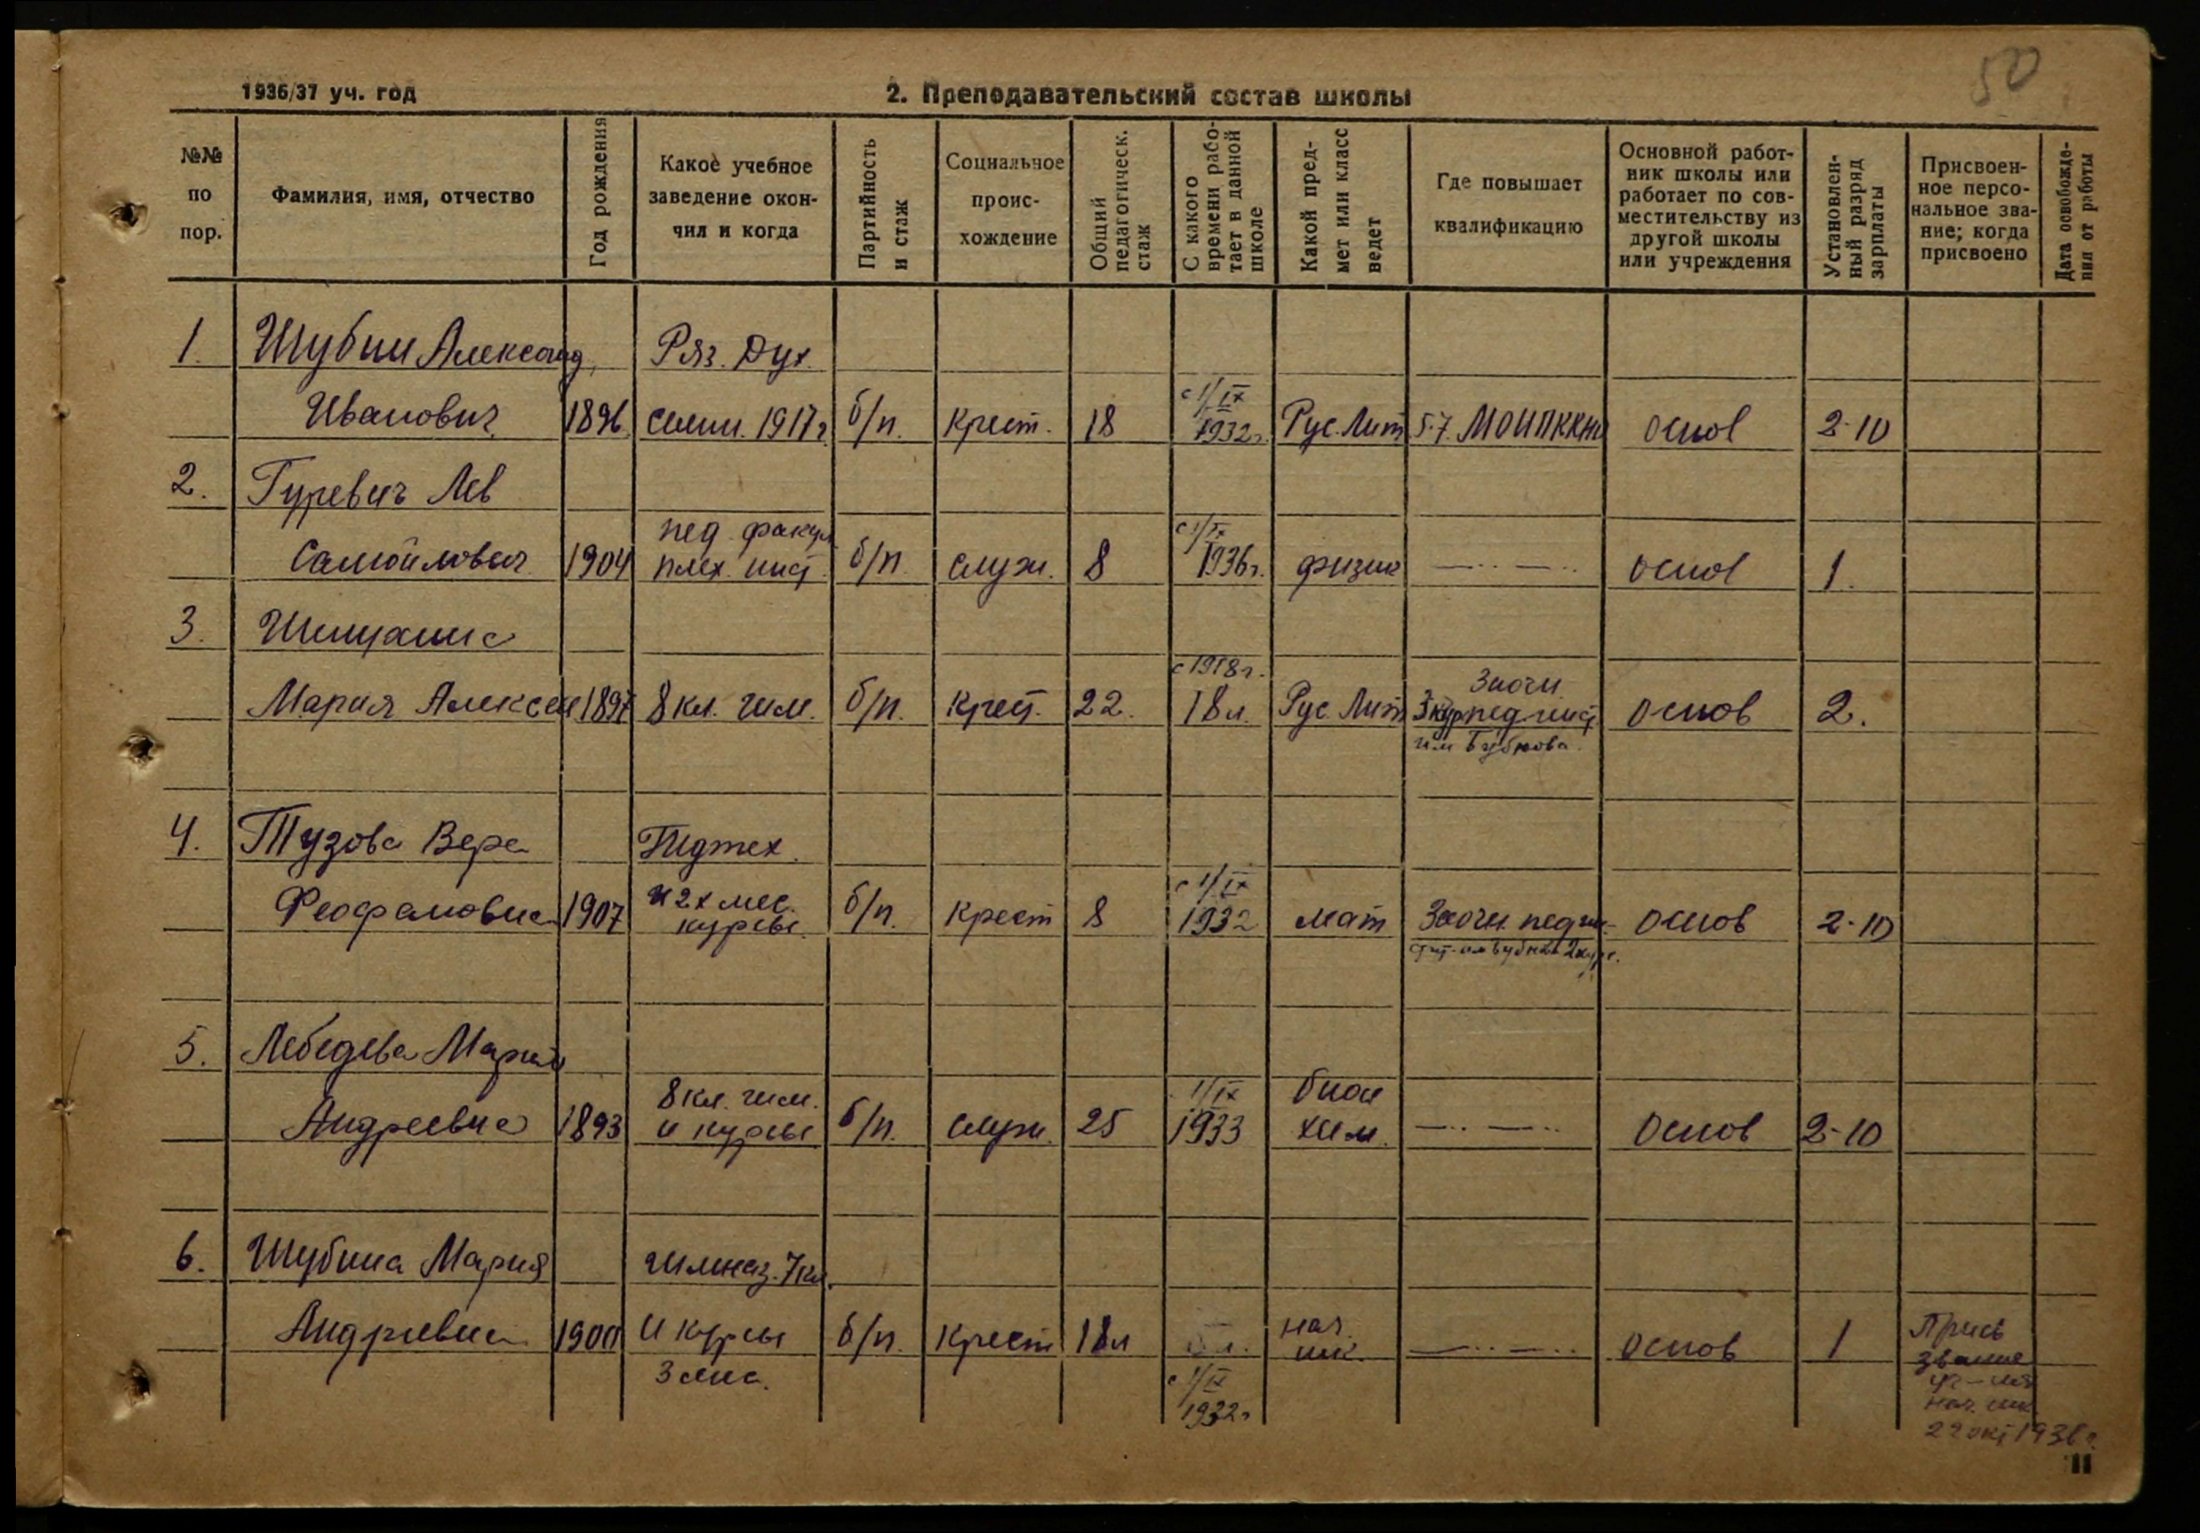 50
1936/37 уч. год
2. Преподавательский состав школы
№№ по пор.
Фамилия, имя, отчество
Год рождения
Какое учебное заведение окончил и когда
Партийность и стаж
Социальное проис-хождение
Общий педагогическ. стаж
С какого времени рабо-тает в данной школе
Какой пред-мет или класс ведет
Где повышает квалификацию
Основной работ-ник школы или работает по сов-местительству из другой школы или учреждения
Установлен-ный разряд зарплаты
Присвоен-ное персо-нальное зва-ние; когда присвоено
Дата освобожде-ния от работы
1. Шубин Александ Ряз. Дух.
Иванович 1896 семин. 1917г. б/п. крест. 18 с 1/IX 1932г. Рус. Лит 5-7. основ 2-10
2. Гуревич Лев
Самойлович 1904 пед. факул. плех. инст б/п служ. 8 с 1/IX 1936г. физик —··—·· основ 1.
3.
Мария Алексее 1897 8 кл. гим. б/п. крест. 22. с 1918г. 18 л. Рус. Лит Заочн. 3 кур пед инст им Бубнова. основ 2.
4. Тузова Вера Педтех.
Феофановна 1907 и 2х мес. курсы. б/п. крест 8 с 1/IX 1932 мат Заочн. пед ин-стит. им Бубнова 2 курс. основ 2-10
5. Лебедева Мария
Андреевна 1893 8 кл. гим. и курсы б/п. служ. 25 1/IX 1933 биол хим. —··—·· основ 2-10
6. Шубина Мария гимназ. 7 кл.
Андреевна 1900 и курсы 3 мес. б/п. крест 18 л с 1/IX 1932г нач. шк. —··—·· основ 1 Присв звание уч-ля нач. шк. 22 окт 1936г.
11